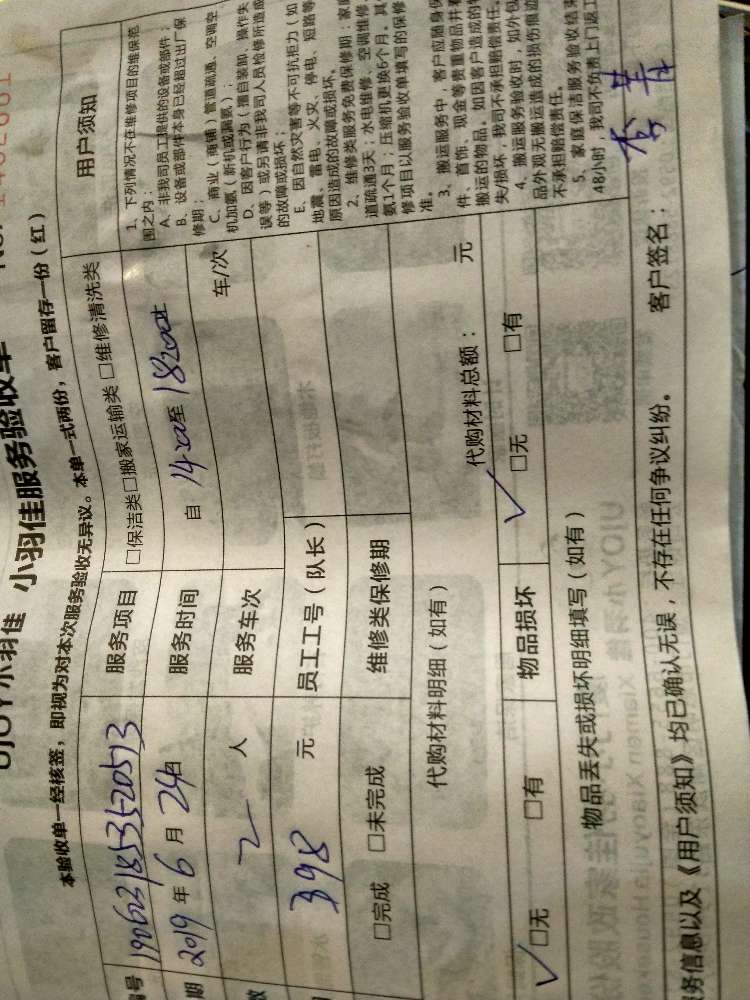 小羽佳 小羽佳服务验收单
本验收单一经核签，即视为对本次服务验收无异议。本单一式两份，客户留存一份（红）
服务项目 □保洁类□搬家运输类 □维修清洗类
2019年6月24日 服务时间 自 至
2 人 服务车次 车/次
398 元 员工工号（队长）
□完成 □未完成 维修类保修期
代购材料明细（如有） 代购材料总额： 元
✓□无 □有 物品损坏 ✓□无 □有
物品丢失或损坏明细填写（如有）
服务信息以及《用户须知》均已确认无误，不存在任何争议纠纷。 客户签名：
用户须知
1、下列情况不在维修项目的维保范
围之内：
A、非我司员工提供的设备或部件；
B、设备或部件本身已经超过出厂保
修期；
C、商业（商铺）管道疏通、空调空
机加氨（新机或漏氨）；
D、因客户行为（擅自装卸、操作失
误等）或另请非我司人员检修所造成
的故障或损坏；
E、因自然灾害等不可抗拒力（如
地震、雷电、火灾、停电、短路等
原因造成的故障或损坏。
2、维修类服务免费保修期：家
道疏通3天；水电维修、空调维修
氨1个月；压缩机更换6个月，其
修项目以服务验收单填写的保修
准。
3、搬运服务中，客户应随身保
件、首饰、现金等贵重物品并
搬运的物品。如因客户造成的
失/损坏，我司不承担赔偿责任。
4、搬运服务验收时，如外包
品外观无搬运造成的损伤痕迹
不承担赔偿责任。
5、家庭保洁服务验收结束
48小时，我司不负责上门返工